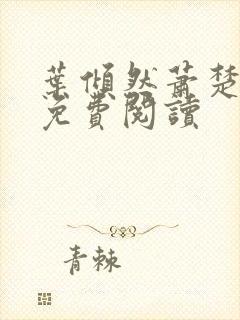 葉傾然蕭楚
免費閱讀
青棘